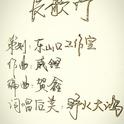 长歌行
策划：东山口工作室
作曲：咸鲤
编曲：贺鑫
词唱后美：野火大鸿